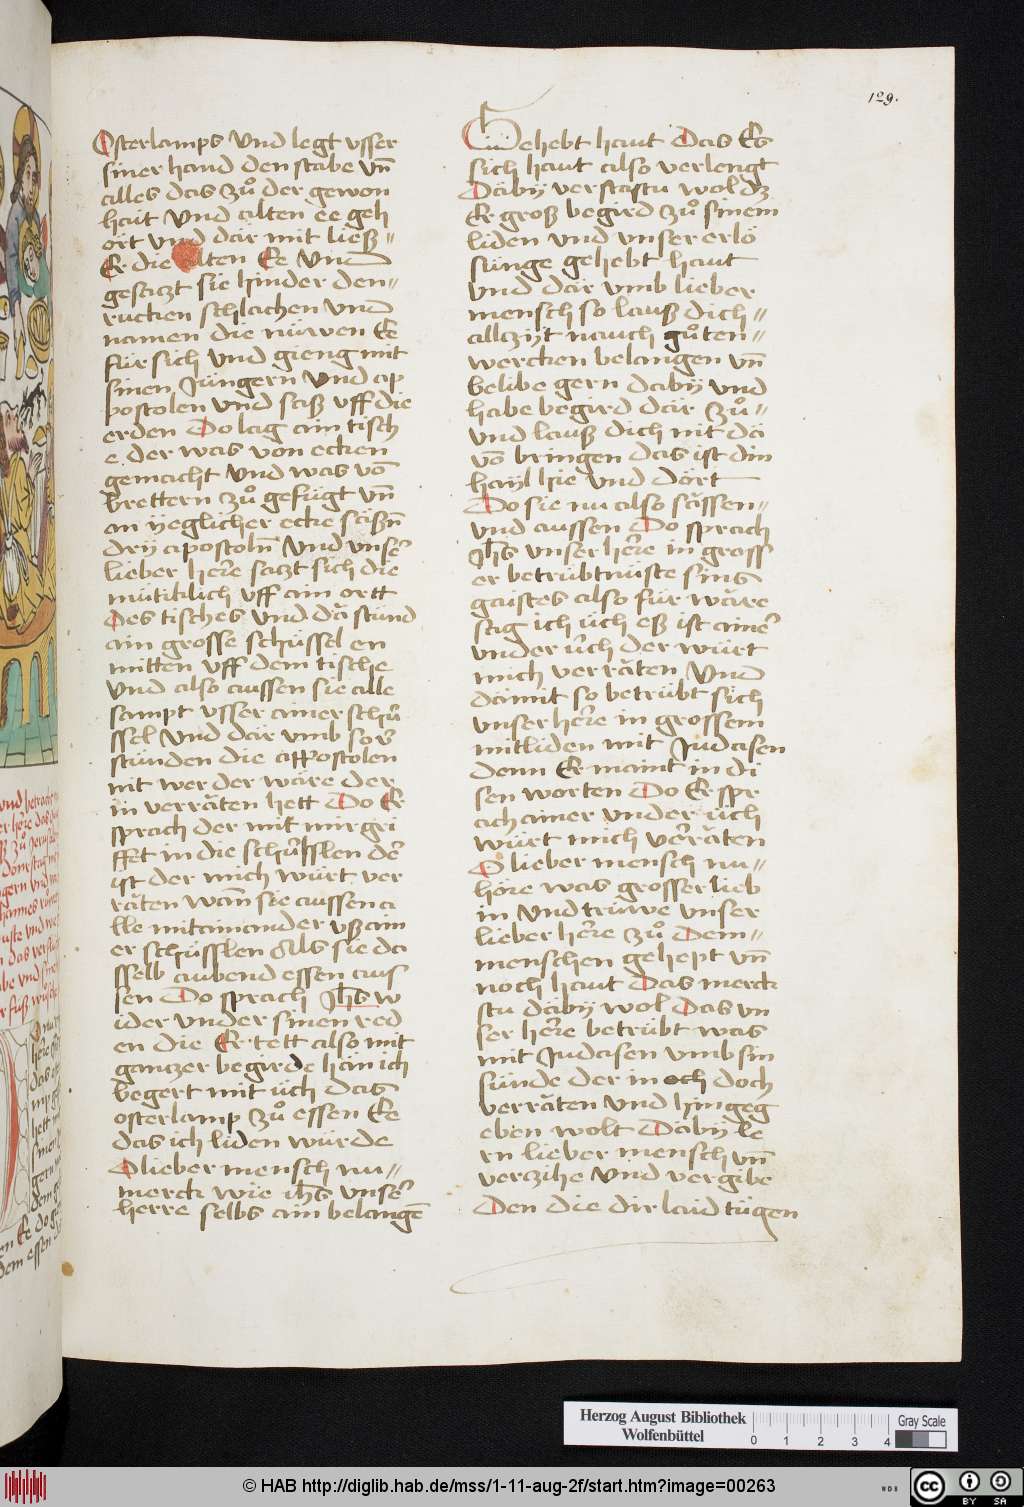 129.
Osterlamps Vnd legt vsser
siner hand den stabe vn̄
alles das zů der gewon
hait Vnd alten ee geh
ört vnd dar mit ließ〃
Er die alten Ee Vnd
gesatzt sie hinder den〃
rucken schlachen Vnd
namen die nüwen Ee
für sich Vnd gieng mit
sinen Jüngern Vnd ap
postolen Vnd saß vff die
erden Do lag ain tisch
e der was von ecken
gemacht Vnd was vō
brettern zů gefügt vn̄
an yeglicher ecke säßn̄
dry apostoln̄ Vnd vnser̄
lieber her̄e satzt sich die
mütiklich vff ain ortt
Des tisches Vnd dā stünd
ain grosse schüssel en
mitten vff dem tische
Vnd also aussen sie alle
sampt vsser ainer schü
ssel Vnd dar vmb sor̄
stünden die appostolen
nit wer der wäre der
in verräten hett Do Er
sprach der mit mir gri
ffet in die schüsslen der̄
ist der mich würt ver
räten wān sie aussen a
lle mitainander vß ain
er schüsslen Als sie da
sselb aubend essen aus
sen Do sprach Jh̄s w
ider vnder sinen red
en die Er tett also mit
gantzer begirde hān ich
begert mit üch das
osterlamp zů essen Ee
das ich liden würde
O lieber mensch nu〃
merck wie ih̄s vnser̄
herre selbs ain belangē
Gehebt haut Das Es
sich haut also verlengt
Däby verstastu wol dz
Er groß begird zů sinem
liden vnd vnser erlö
sünge gehebt haut
Vnd där vmb lieber
mensch so lauß dich〃
allzyt nauch gůten〃
wercken belangen vn̄
belibe gern daby vnd
habe begird där zů〃
vnd lauß dich nit dä
vō bringen das ist din
hayl hie vnd dört
Do sie nu also sässen〃
vnd aussen Do sprach
Jh̄s vnser her̄e in gross
er betrübtnüste sins
gaistes also für wäre
sag ich üch eß ist ainer̄
vnder üch der würt
mich verräten Vnd
dämit so betrübt sich
vnser her̄e in grossem
mitliden mit Judasen
denn Er maint in di
sen worten Do Er spr
ach ainer vnder üch
würt mich verräten
O lieber mensch nu〃
höre was grosser lieb
in Vnd trüwe vnser
lieber her̄e zů Dem〃
menschen gehept vn̄
noch haut Das merck
stu däby wol Das vn
ser her̄e betrübt was
mit Judasen vmb sin
sünde der in och doch
verräten Vnd hingeg
eben wolt Däby le
rn lieber mensch vn̄
verzihe Vnd vergibe
Den die dir laid tügen
Herzog August Bibliothek
Wolfenbüttel
0 1 2 3 4
Gray Scale
© HAB http://diglib.hab.de/mss/1-11-aug-2f/start.htm?image=00263
WDB
cc BY SA